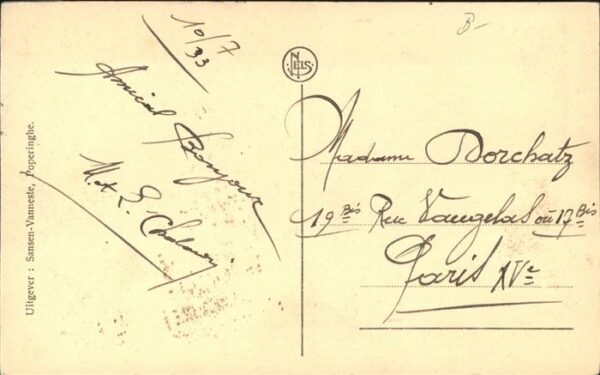 10/7
33
Amical Bonjour
M. & L.
Uitgever : Sansen-Vanneste, Poperinghe.
NELS
B-
Madame Dorchatz
19 Bis Rue Vaugelas ou 17 Bis
Paris XVe